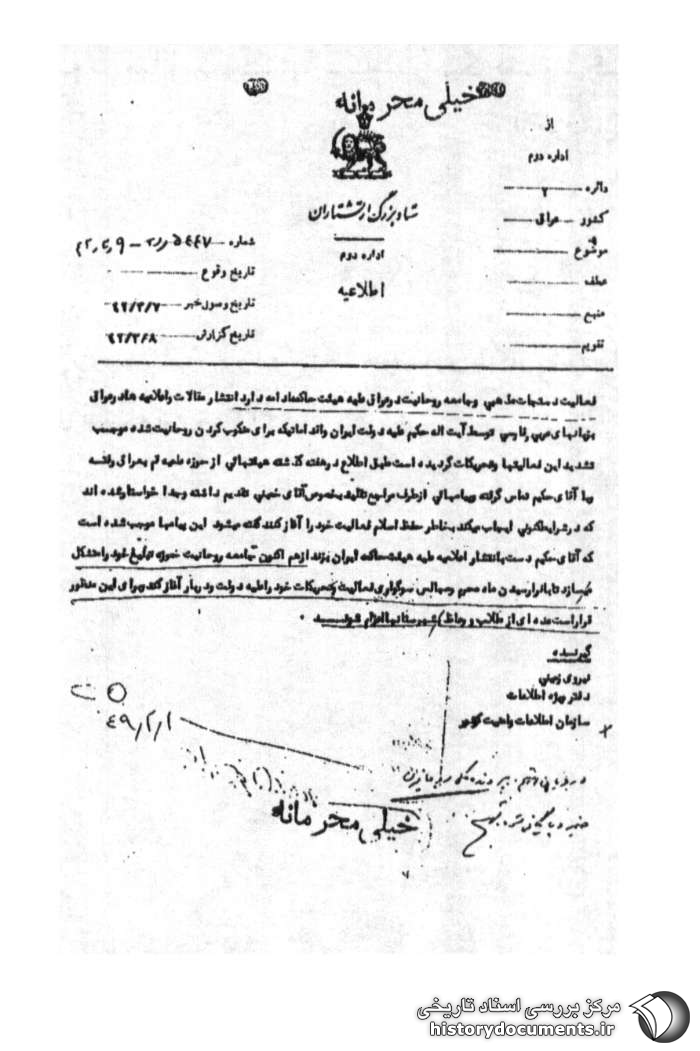 خیلی محرمانه
از
اداره دوم
دائره ۲
کشور عراق
موضوع
عطف
منبع
تقویم
ستاد بزرگ ارتشتاران
اداره دوم
اطلاعیه
شماره
تاریخ وقوع
تاریخ وصول خبر ۴۲/۲/۷
تاریخ گزارش ۴۲/۲/۸
فعالیت دستجات مذهبی و جامعه روحانیت در عراق علیه هیئت حاکمه ادامه دارد انتشار مقالات و اعلامیه ها در عراق
بزبانهای عربی و فارسی توسط آیت اله حکیم علیه دولت ایران و اقداماتیکه برای منکوب کردن روحانیت شده موجب
تشدید این فعالیتها و تحریکات گردیده است طبق اطلاع در هفته گذشته هیئتهائی از حوزه علمیه قم بعراق رفته
و با آقای حکیم تماس گرفته و پیامهائی از طرف مراجع تقلید بخصوص آقای خمینی تقدیم داشته و جدا خواستار شده اند
که در شرایط کنونی ایجاب میکند بخاطر حفظ اسلام فعالیت خود را آغاز کنند گفته میشود این پیامها موجب شده است
که آقای حکیم دست بانتشار اعلامیه علیه هیئت حاکمه ایران بزند از هم اکنون جامعه روحانیت حوزه تبلیغ خود را متشکل
میسازد تا با فرا رسیدن ماه محرم و مجالس سوگواری فعالیت و تحریکات خود را علیه دولت و دربار آغاز کند و برای این منظور
قرار است عده ای از طلاب و وعاظ بشهرستانها اعزام شوند .
گیرنده
نیروی زمینی
دفتر ویژه اطلاعات
سازمان اطلاعات و امنیت کشور
۴۹/۲/۱
خیلی محرمانه
مرکز بررسی اسناد تاریخی
historydocuments.ir